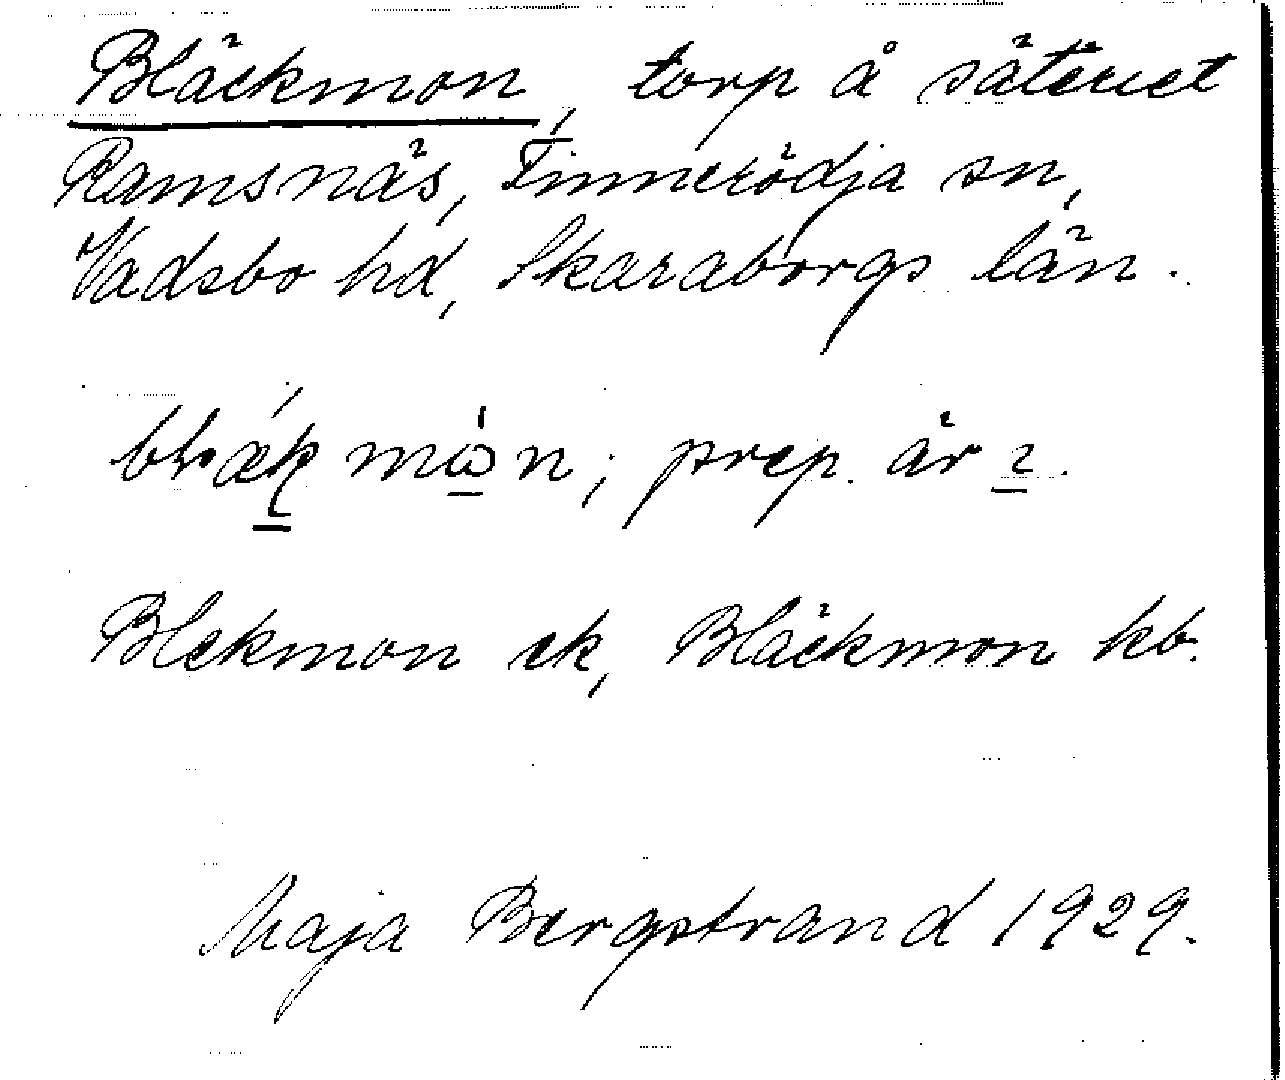 Bläckmon, torp å säteriet
Ramsnäs, Finnerödja sn,
Vadsbo hd, Skaraborgs län.
prep. är ı.
Blekmon ek, Bläckmon kb.
Maja Bergstrand 1929.